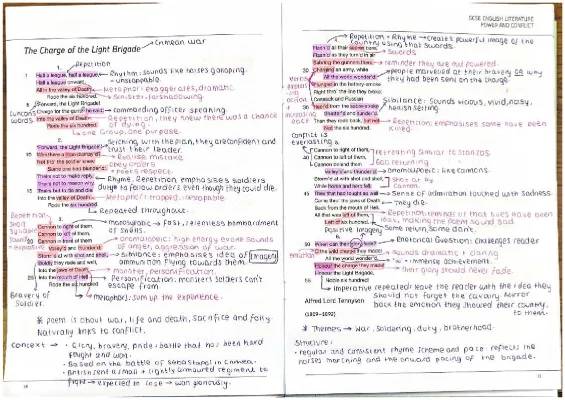 GCSE ENGLISH LITERATURE
POWER AND CONFLICT
The Charge of the Light Brigade
Crimean war
Repetition
1.
Half a league, half a league,
Half a league onward,
All in the valley of Death
Rode the six hundred.
'Forward, the Light Brigade!
Charge for the guns!' he said:
Into the valley of Death
Rode the six hundred.
Rhythm: sounds like horses galloping.
Metaphor: exaggerates, dramatic
Sinister, foreshadowing
commanding officer speaking
Repetition, they knew there was a chance
of dying.
one Group, one purpose.
2.
'Forward, the Light Brigade!'
Was there a man dismay'd?
Not tho' the soldier knew
Some one had blunder'd:
Theirs not to make reply,
Theirs not to reason why,
Theirs but to do and die:
Into the valley of Death
Rode the six hundred.
trust their leader.
Realise mistake
obey orders
Rhyme. Repetition emphasises soldiers
duty to follow orders even though they could die.
Metaphor: trapped, inescapable
Repeated throughout.
3.
Cannon to right of them,
Cannon to left of them,
Cannon in front of them
Volley'd and thunder'd;
Storm'd at with shot and shell,
Boldly they rode and well,
Into the jaws of Death,
Into the mouth of Hell
Rode the six hundred.
fast, relentless bombardment
of shells.
Onomatopoeic: high energy evoke sounds
of anger, aggression of war.
Sibilance: emphasises idea of
ammunition flying towards them.
Imagery
monster, personification.
Personification: monsters soldiers can't
escape from
Bravery of
Soldier.
metaphor: sum up the experience.
* poem is about war, life and death, sacrifice and folly
Naturally links to conflict.
Context → · Glory, bravery, pride: battle that has been hard
fought and won.
· Based on the battle of sebastopol in Crimea.
· British sent a small + lightly armoured regiment to
fight → expected to lose → won gloriously.
4.
Repetition + Rhyme → creates powerful image of the
country using their swords.
Flash'd all their sabres bare,
Flash'd as they turn'd in air
Sabring the gunners there,
Charging an army, while
All the world wonder'd:
Plunged in the battery-smoke
Right thro' the line they broke;
Cossack and Russian
Reel'd from the sabre-stroke
Shatter'd and sunder'd.
Then they rode back, but not
Not the six hundred.
Swords
people marvelled at their bravery or why
they had been sent on the charge
Sibilance: sounds vicious, vivid, noisy,
Repetition: emphasises some have been
killed.
Conflict is
everlasting
5.
Cannon to right of them,
Cannon to left of them,
Cannon behind them
Volley'd and thunder'd;
Storm'd at with shot and shell,
While horse and hero fell,
They that had fought so well
Came thro' the jaws of Death
Back from the mouth of Hell,
All that was left of them,
Left of six hundred.
Onomatopoeia: like cannons.
Shot at by
cannon
Sense of admiration touched with sadness
They die.
Positive imagery
Some return, some don't.
6.
When can their glory fade?
O the wild charge they made!
All the world wonder'd.
Honour the charge they made!
Honour the Light Brigade,
Noble six hundred!
Rhetorical Question: challenges reader
immense achievement.
their glory should never fade.
Imperative repeated: leave the reader with the idea they
should not forget the cavalry. Mirror
back the emotion they showed their country
to them.
Alfred Lord Tennyson
(1809–1892)
* Themes → War, Soldiering, duty, brotherhood.
Structure:
· regular and consistent rhyme scheme and pace: reflects the
horses marching and the onward pacing of the brigade.